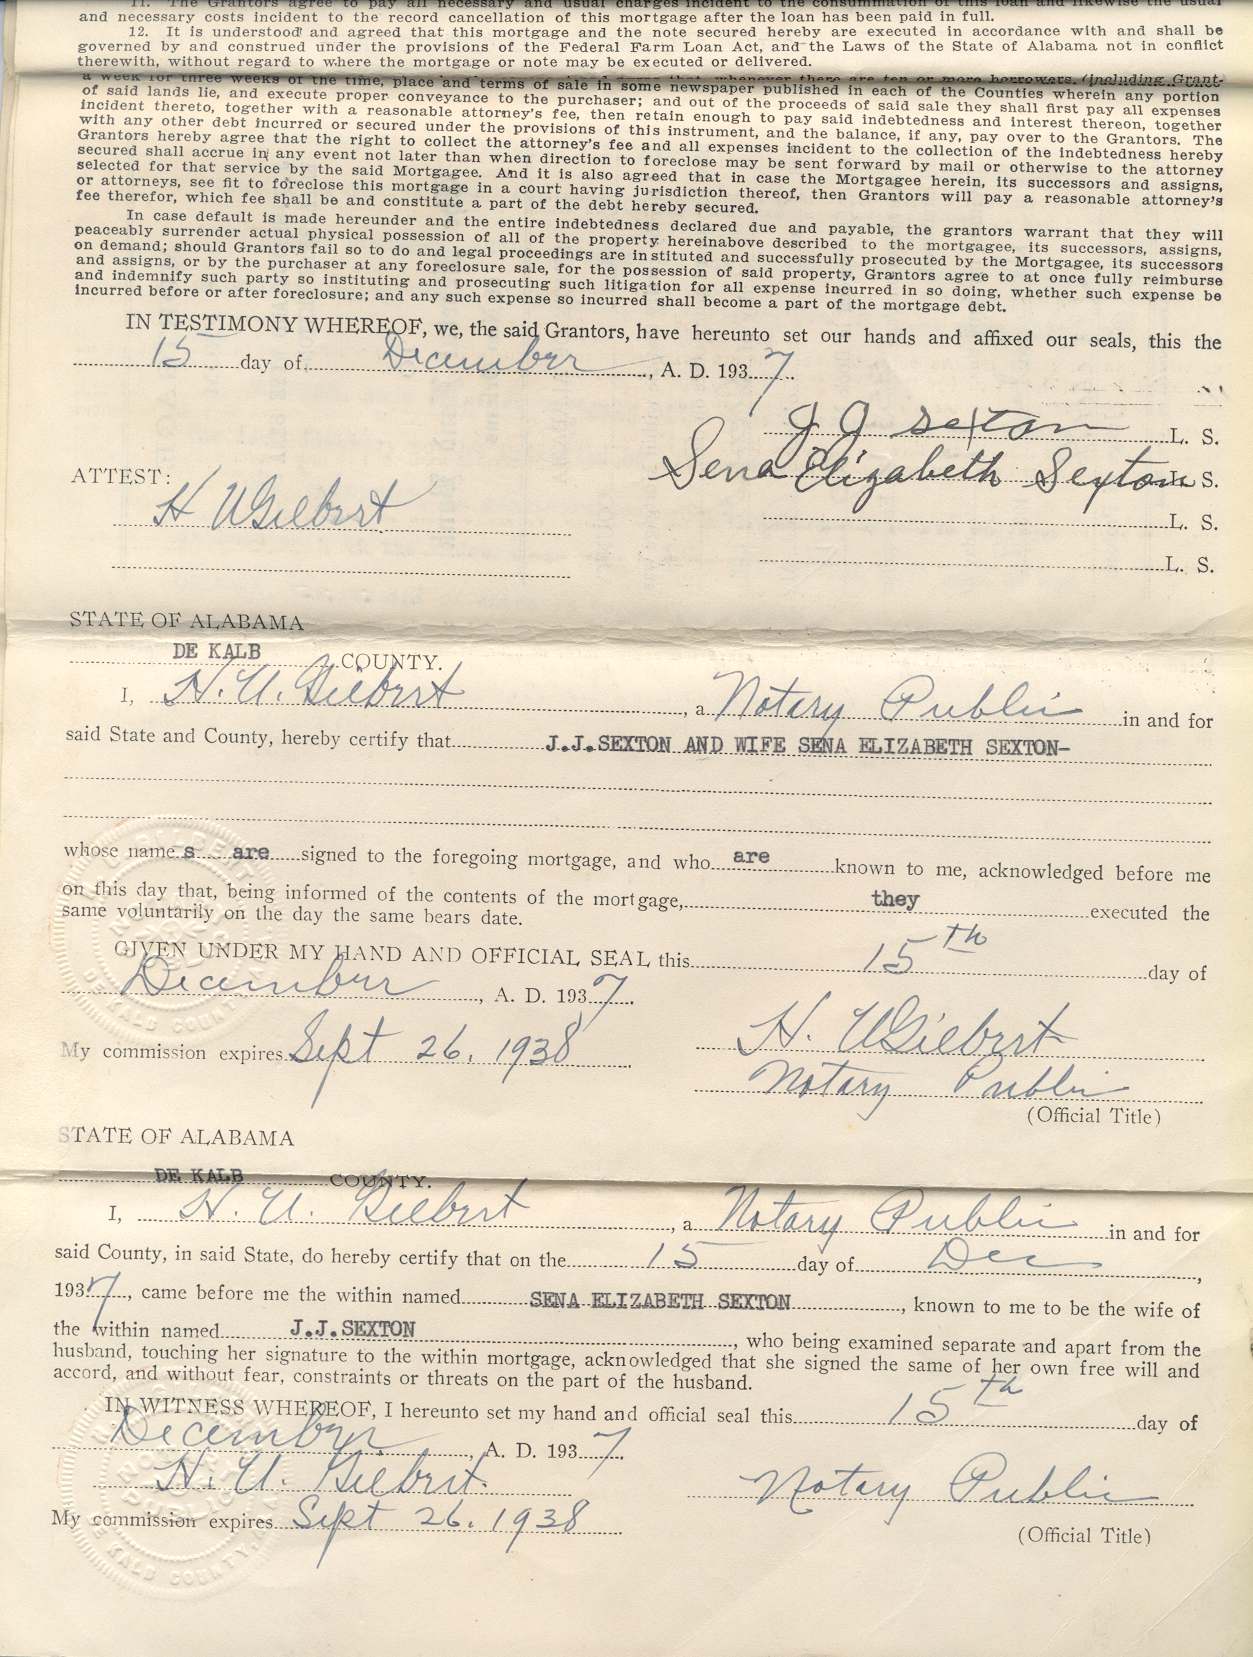 11. The Grantors agree to pay all necessary and usual charges incident to the consummation of this loan and likewise the usual
and necessary costs incident to the record cancellation of this mortgage after the loan has been paid in full.
12. It is understood and agreed that this mortgage and the note secured hereby are executed in accordance with and shall be
governed by and construed under the provisions of the Federal Farm Loan Act, and the Laws of the State of Alabama not in conflict
therewith, without regard to where the mortgage or note may be executed or delivered.
a week for three weeks of the time, place and terms of sale in some newspaper published in each of the Counties wherein any portion
of said lands lie, and execute proper conveyance to the purchaser; and out of the proceeds of said sale they shall first pay all expenses
incident thereto, together with a reasonable attorney's fee, then retain enough to pay said indebtedness and interest thereon, together
with any other debt incurred or secured under the provisions of this instrument, and the balance, if any, pay over to the Grantors. The
Grantors hereby agree that the right to collect the attorney's fee and all expenses incident to the collection of the indebtedness hereby
secured shall accrue in any event not later than when direction to foreclose may be sent forward by mail or otherwise to the attorney
selected for that service by the said Mortgagee. And it is also agreed that in case the Mortgagee herein, its successors and assigns,
or attorneys, see fit to foreclose this mortgage in a court having jurisdiction thereof, then Grantors will pay a reasonable attorney's
fee therefor, which fee shall be and constitute a part of the debt hereby secured.
In case default is made hereunder and the entire indebtedness declared due and payable, the grantors warrant that they will
peaceably surrender actual physical possession of all of the property hereinabove described to the mortgagee, its successors, assigns,
on demand; should Grantors fail so to do and legal proceedings are instituted and successfully prosecuted by the Mortgagee, its successors
and assigns, or by the purchaser at any foreclosure sale, for the possession of said property, Grantors agree to at once fully reimburse
and indemnify such party so instituting and prosecuting such litigation for all expense incurred in so doing, whether such expense be
incurred before or after foreclosure; and any such expense so incurred shall become a part of the mortgage debt.
IN TESTIMONY WHEREOF, we, the said Grantors, have hereunto set our hands and affixed our seals, this the
15 day of December, A. D. 1937.
J J Sexton L. S.
Sena Elizabeth Sexton L. S.
ATTEST:
H U Giebert
L. S.
L. S.
STATE OF ALABAMA
DE KALB COUNTY.
I, H. U. Giebert, a Notary Public in and for
said State and County, hereby certify that J.J.SEXTON AND WIFE SENA ELIZABETH SEXTON-
whose name s are signed to the foregoing mortgage, and who are known to me, acknowledged before me
on this day that, being informed of the contents of the mortgage, they executed the
same voluntarily on the day the same bears date.
GIVEN UNDER MY HAND AND OFFICIAL SEAL this 15th day of
December, A. D. 1937.
My commission expires Sept 26, 1938
H. U Giebert
Notary Public
(Official Title)
STATE OF ALABAMA
DE KALB COUNTY.
I, H. U. Giebert, a Notary Public in and for
said County, in said State, do hereby certify that on the 15 day of Dec,
1937, came before me the within named SENA ELIZABETH SEXTON, known to me to be the wife of
the within named J.J.SEXTON, who being examined separate and apart from the
husband, touching her signature to the within mortgage, acknowledged that she signed the same of her own free will and
accord, and without fear, constraints or threats on the part of the husband.
IN WITNESS WHEREOF, I hereunto set my hand and official seal this 15th day of
December, A. D. 1937.
H. U. Giebert. Notary Public
My commission expires Sept 26, 1938
(Official Title)
DE KALB COUNTY
DE KALB COUNTY, ALA